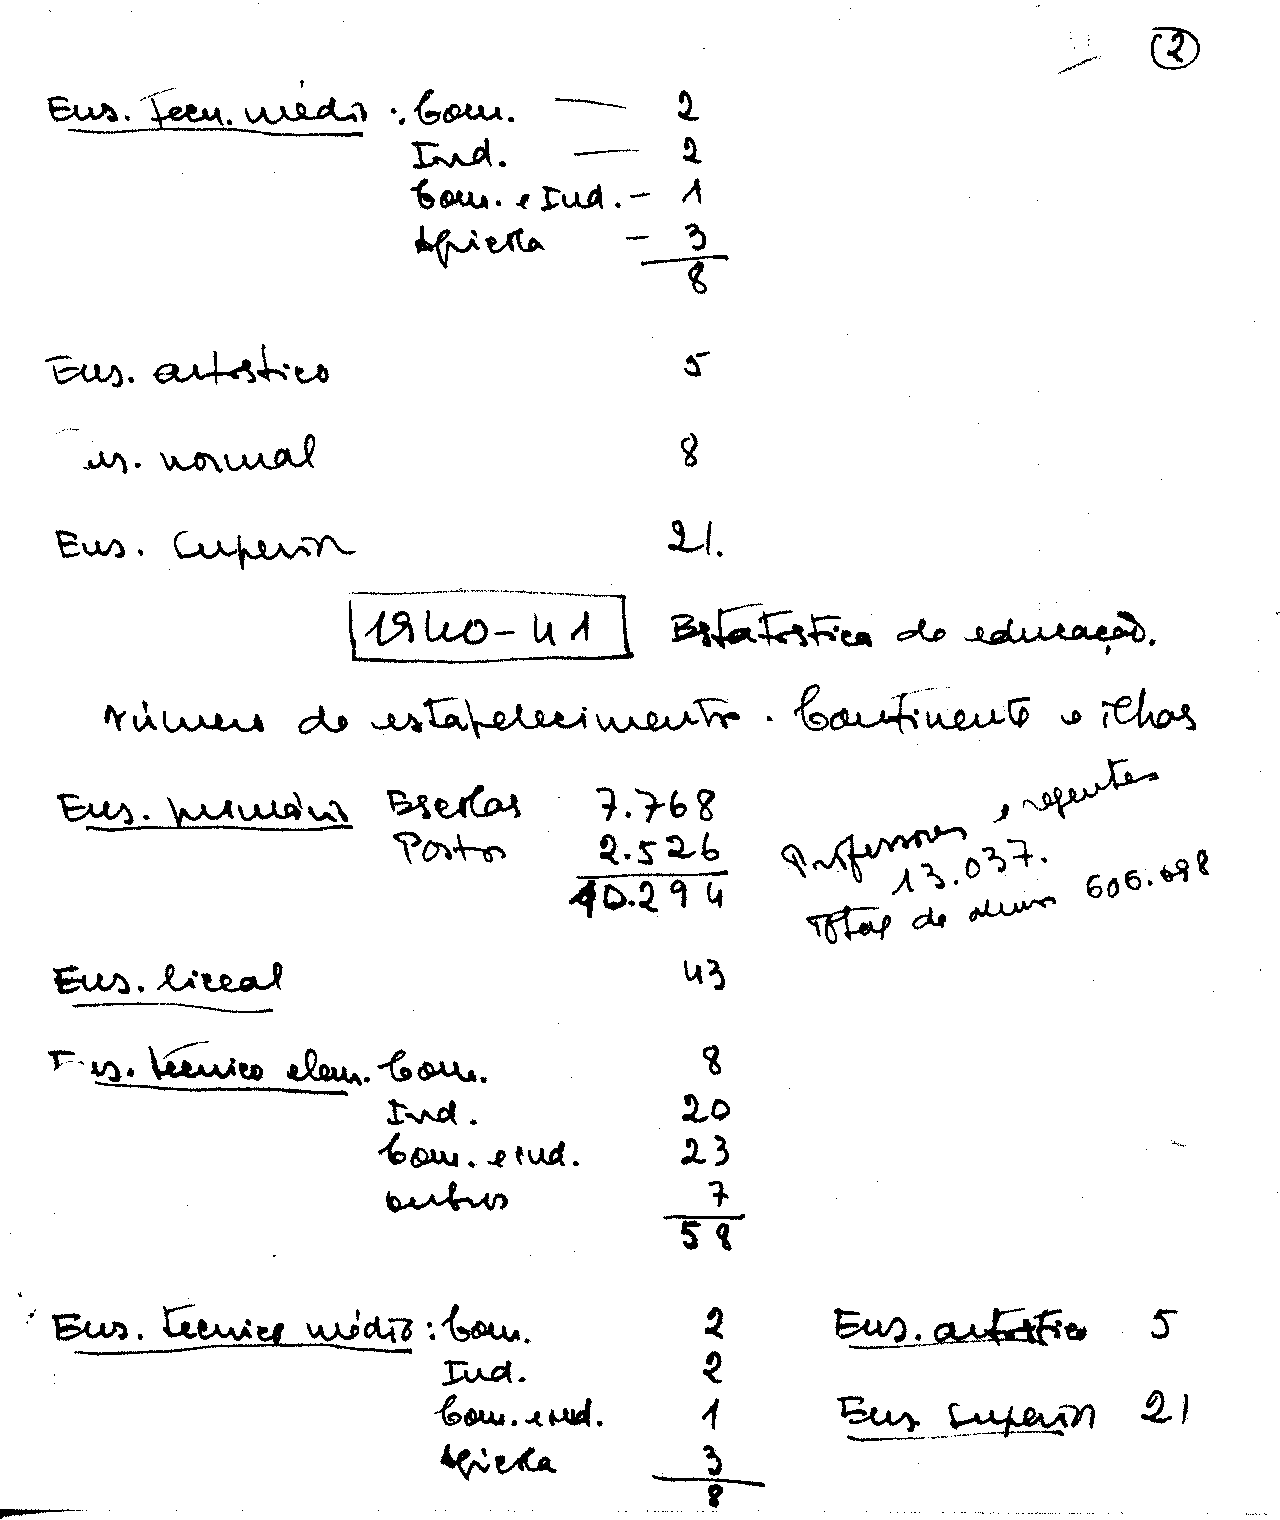 2
Ens. Tecn. médio: Com. — 2
Ind. — 2
Com. e Ind. - 1
Agricola - 3
8
Ens. artístico 5
Ens. normal 8
Ens. Superior 21.
1940-41 Estatística da educação.
Número de estabelecimentos. Continente e ilhas
Ens. primário Escolas 7.768
Postos 2.526
10.294
Professores e regentes
13.037.
Total de alunos 606.698
Ens. liceal 43
Ens. técnico elem. Com. 8
Ind. 20
Com. e ind. 23
outros 7
58
Ens. técnico médio: Com. 2
Ind. 2
Com. e ind. 1
Agricola 3
8
Ens. artístico 5
Ens. Superior 21